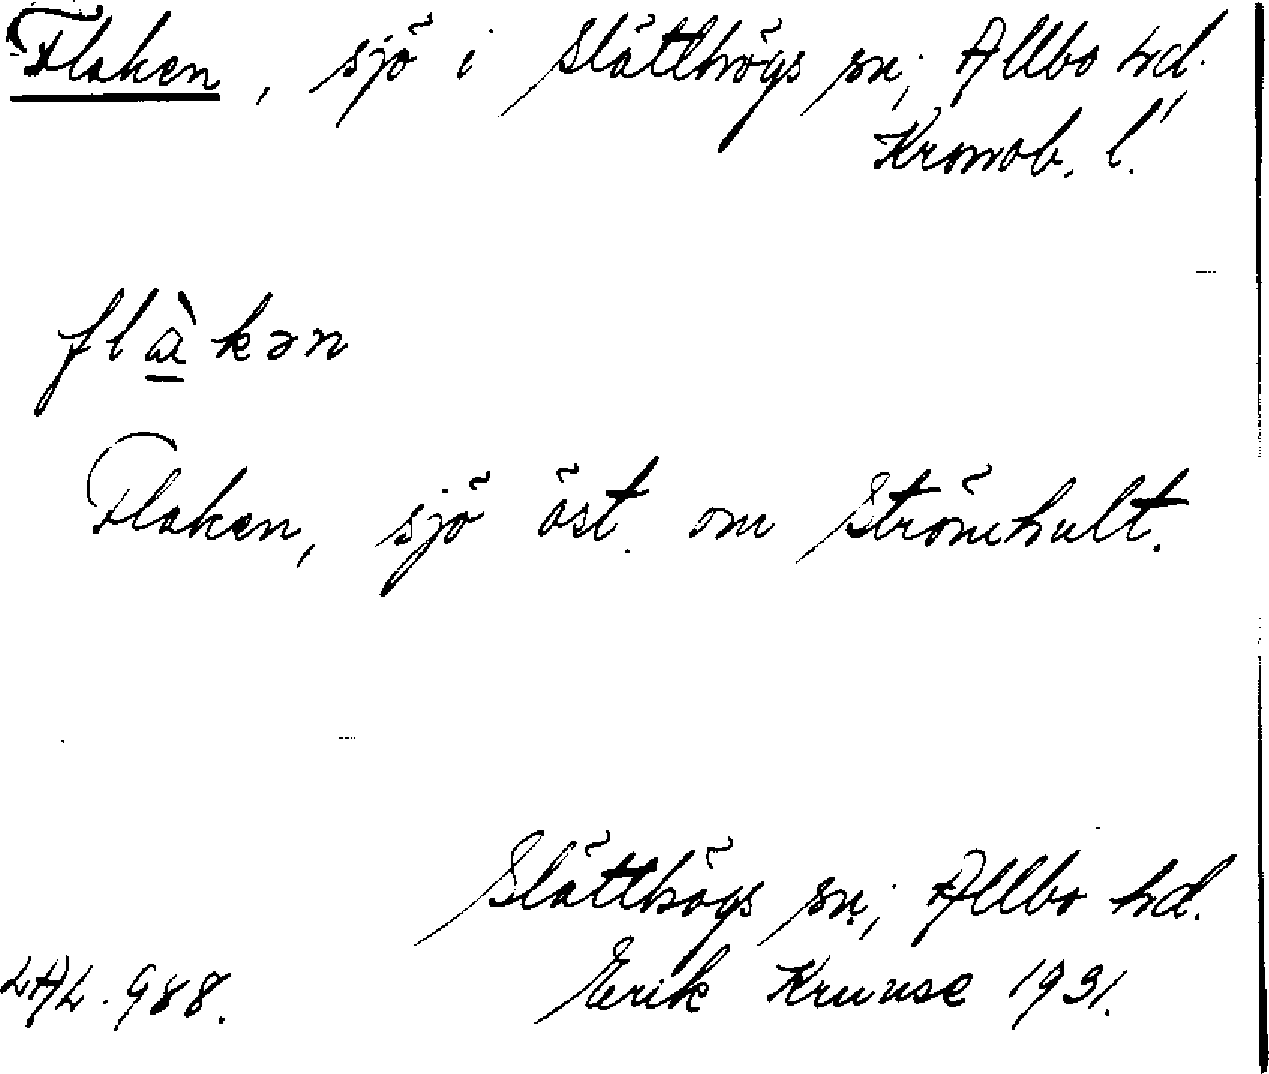 Flaken, sjö i Slätthögs sn; Allbo hd,
Kronob. l.
flàkən
Flaken, sjö öst. om Strömhult.
Slätthögs sn; Allbo hd.
LAL. 988. Erik Kruuse 1931.